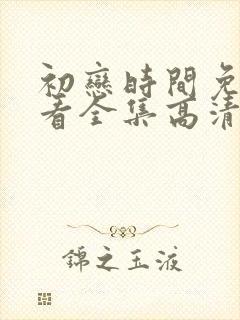 初戀時間免
看全集高清
錦之玉液